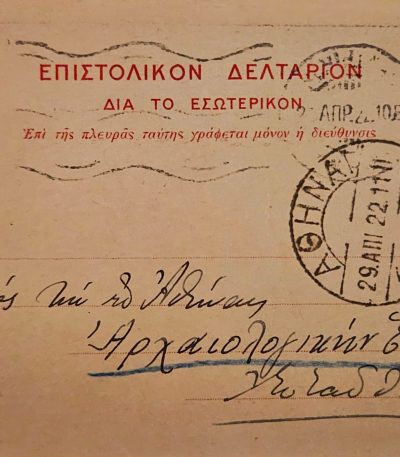 ΕΠΙΣΤΟΛΙΚΟΝ ΔΕΛΤΑΡΙΟΝ
ΔΙΑ ΤΟ ΕΣΩΤΕΡΙΚΟΝ
Ἐπὶ τῆς πλευρᾶς ταύτης γράφεται μόνον ἡ διεύθυνσις
ΑΠΡ. 22.10
ΑΘΗΝΑΙ
29.ΑΠ 22.11
τὴν ἐν Ἀθήναις
Ἀρχαιολογικήν Ἑ